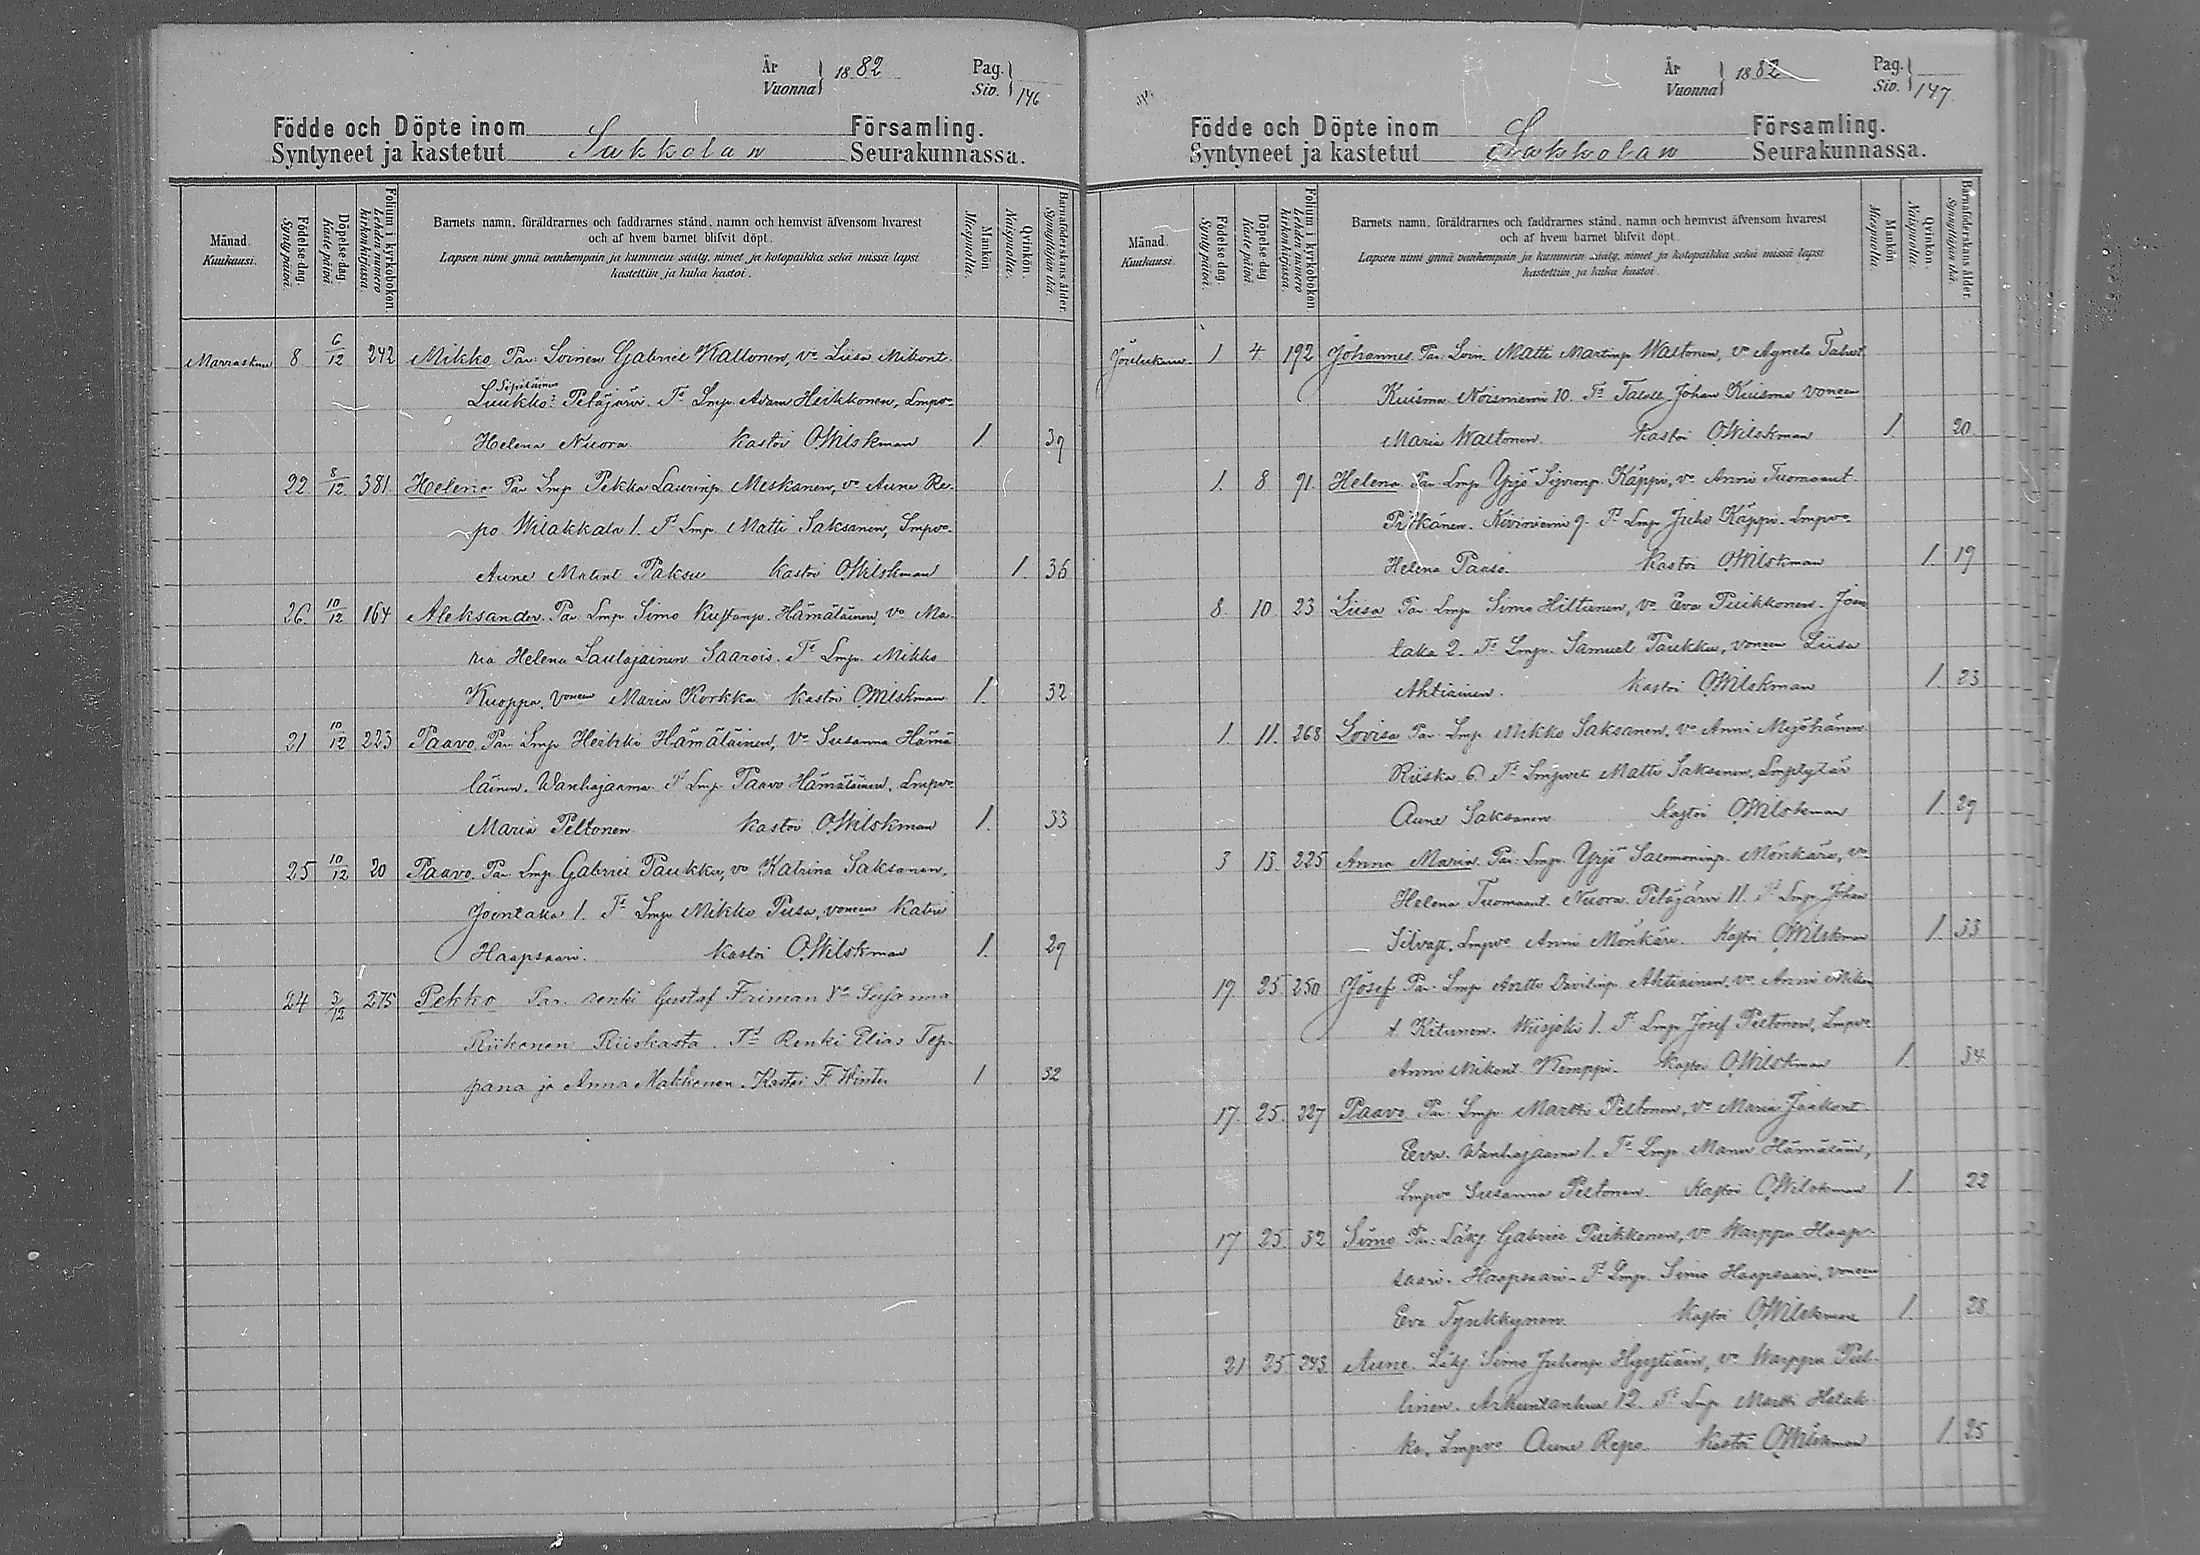 År
Vuonna } 1882
Pag.
Siv. } 146
Födde och Döpte inom Församling.
Syntyneet ja kastetut Sakkolan Seurakunnassa.
Månad. Kuukausi.
Födelse-dag. Syntypäivä.
Döpelse-dag. Kastepäivä.
Folium i kyrkoboken. Lehden numero kirkonkirjassa.
Barnets namn, föräldrarnes och faddrarnes stånd, namn och hemvist äfvensom hvarest
och af hvem barnet blifvit döpt.
Lapsen nimi ynnä vanhempain ja kummein sääty, nimet ja kotopaikka sekä missä lapsi
kastettiin ja kuka kastoi.
Mankön. Miespuolia.
Qvinkön. Naispuolia.
Barnaföderskans ålder. Synnyttäjän ikä.
Marraskuu 8 6/12 242 Mikko Par. Loinen Gabriel Waltonen, vo Liisa Mikont.
Löpitäinen
Luukko? Petäjärvi. Ts Lmp. Adam Heikkonen, Lmpvo
Helena Nuora Kastoi OWilskman 1. 39
22 8/12 381 Helena Par Lmp Pekka Laurinp. Meskanen, vo Aune Re-
po Wilakkala 1. Ts Lmp. Matti Saksanen, Lmpvo
Aune Matint Paksu Kastoi OWilskman 1. 36
26. 10/12 164 Aleksander. Par. Lmp. Simo Kustaanp. Hämäläinen, vo Ma-
ria Helena Saulajainen Saarois. Ts Lmp. Mikko
Kuoppa, vonsen Maria Korkka Kastoi OWilskman 1. 32
21 10/12 223 Paavo Par Lmp Heikki Hämäläinen, vo Susanna Hämä
läinen. Wanhajaama Ts Lmp. Paavo Hämäläinen. Lmpvo
Maria Peltonen Kastoi OWilskman 1. 33
25 10/12 20 Paavo. Par Lmp Gabriel Paukku, vo Katrina Saksanen,
Jointaka 1. Ts Lmp Mikko Pusa, vonsen Katri
Haapsaari. Kastoi OWilskman 1. 29
24 3/12 275 Pekko Par. renki Gustaf Friman Vo Susanna
Riikonen Riiskasta. Ts Renki Elias Tep-
pana ja Anna Makkonen. Kastoi F. Winter 1 32
År
Vuonna } 1882
Pag.
Siv. } 147
Födde och Döpte inom Församling.
Syntyneet ja kastetut Sakkolan Seurakunnassa.
Månad. Kuukausi.
Födelse-dag. Syntypäivä.
Döpelse-dag. Kastepäivä.
Folium i kyrkoboken. Lehden numero kirkonkirjassa.
Barnets namn, föräldrarnes och faddrarnes stånd, namn och hemvist äfvensom hvarest
och af hvem barnet blifvit döpt.
Lapsen nimi ynnä vanhempain ja kummein sääty, nimet ja kotopaikka sekä missä lapsi
kastettiin ja kuka kastoi.
Mankön. Miespuolia.
Qvinkön. Naispuolia.
Barnaföderskans ålder. Synnyttäjän ikä.
Jouluukuu 1 4 192 Johannes Par. Loin. Matti Martinp Waltonen, vo Agneta
Kuisma Noisniemi 10. Ts Johan Kuisma vonsen
Maria Waltonen. Kastoi OWilskman 1. 20
1. 8 91. Helena Par Lmp Yrjö Käppi, vo Anni Tuomaant.
Pitkänen. Kiviniemi 9. Ts Lmp Juho Käppi. Lmpvo
Helena Paaso. Kastoi OWilskman 1. 19
8. 10. 23 Liisa Par Lmp Simo Hiltunen, vo Eva Puikkonen. Join
taka 2. Ts Lmp. Samuel Paukku, vonsen Liisa
Ahtiainen. Kastoi OWilskman 1. 23
1. 11. 268 Lovisa Par Lmp Mikko Saksanen, vo Anni Myöhänen.
Riiska 6. Ts Matti Saksanen, Lmptytär
Aune Saksanen Kastoi OWilskman 1. 29
3 13. 225 Anna Maria. Par. Lmp. Yrjö Salomoninp. Mönkäre, vo
Helena Tuomaant. Nuora. Petäjärvi 11. Ts Lmp Johan
Silvast, Lmpvo Anni Mönkäre. Kastoi OWilskman 1. 33
19. 25 250 Josef Par. Lmp Antti Davidinp. Ahtiainen, vo Anni Mikon
t. Kitunen. Wiisjoki 1. Ts Lmp Josef Peltonen, Lmpvo
Anni Mikont Kemppi. Kastoi OWilskman 1. 34
17. 25. 227 Paavo Par Lmp Martti Peltonen, vo Maria Jaakont
Eeva. Wanhajaama 1. Ts Lmp. Manu Hämäläin,
Lmpvo Susanna Peltonen. Kastoi OWilskman 1. 22
17 25. 32 Simo Par. Gabriel Puikkonen, vo Warppu Haap-
saari. Haapsaari. Ts Lmp. Simo Haapsaari, vonsen
Eva Tynkkynen. Kastoi OWilskman 1. 28
21 25 243. Aune. Simo Juhonp Hyytiäin, vo Warppu Pul-
linen. Arkuntanhua 12. Ts Lmp Martti Halak-
ka, Lmpvo Aune Repo. Kastoi OWilskman 1. 25